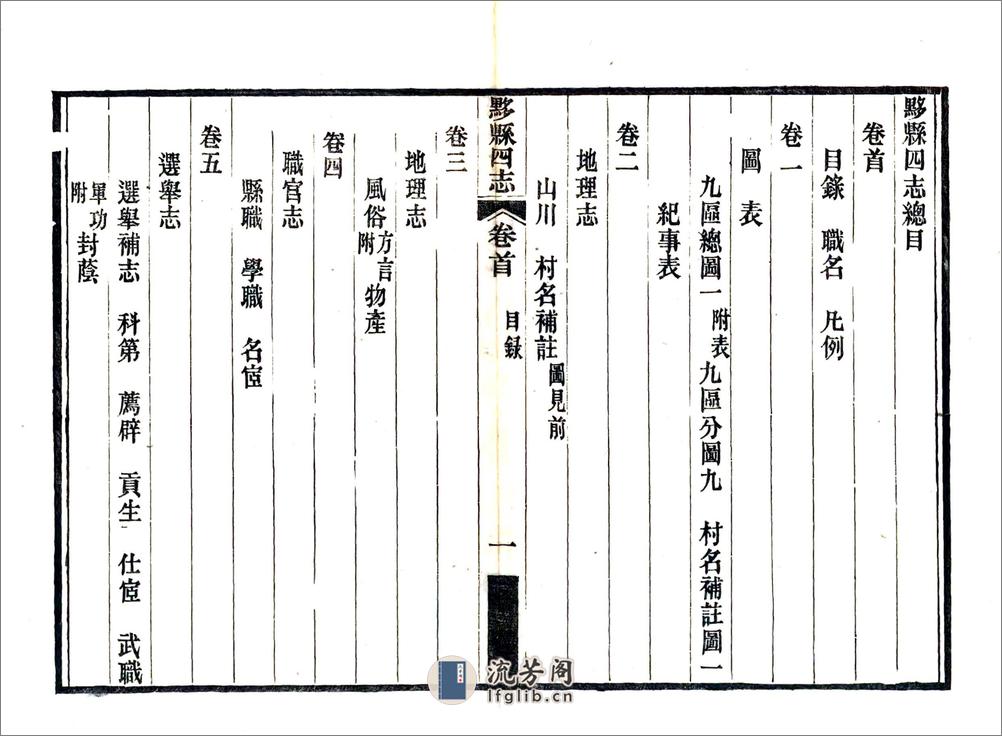 黟縣四志總目
卷首
目錄　職名　凡例
卷一
圖　表
九區總圖一附表九區分圖九　村名補註圖一
紀事表
卷二
地理志
山川　村名補註圖見前
黟縣四志　卷首　目錄　一
卷三
地理志
風俗方言附物產
卷四
職官志
縣職　學職　名宦
卷五
選舉志
選舉補志　科第　薦辟　貢生　仕宦　武職
軍功附封蔭
流芳阁
lfglib.cn